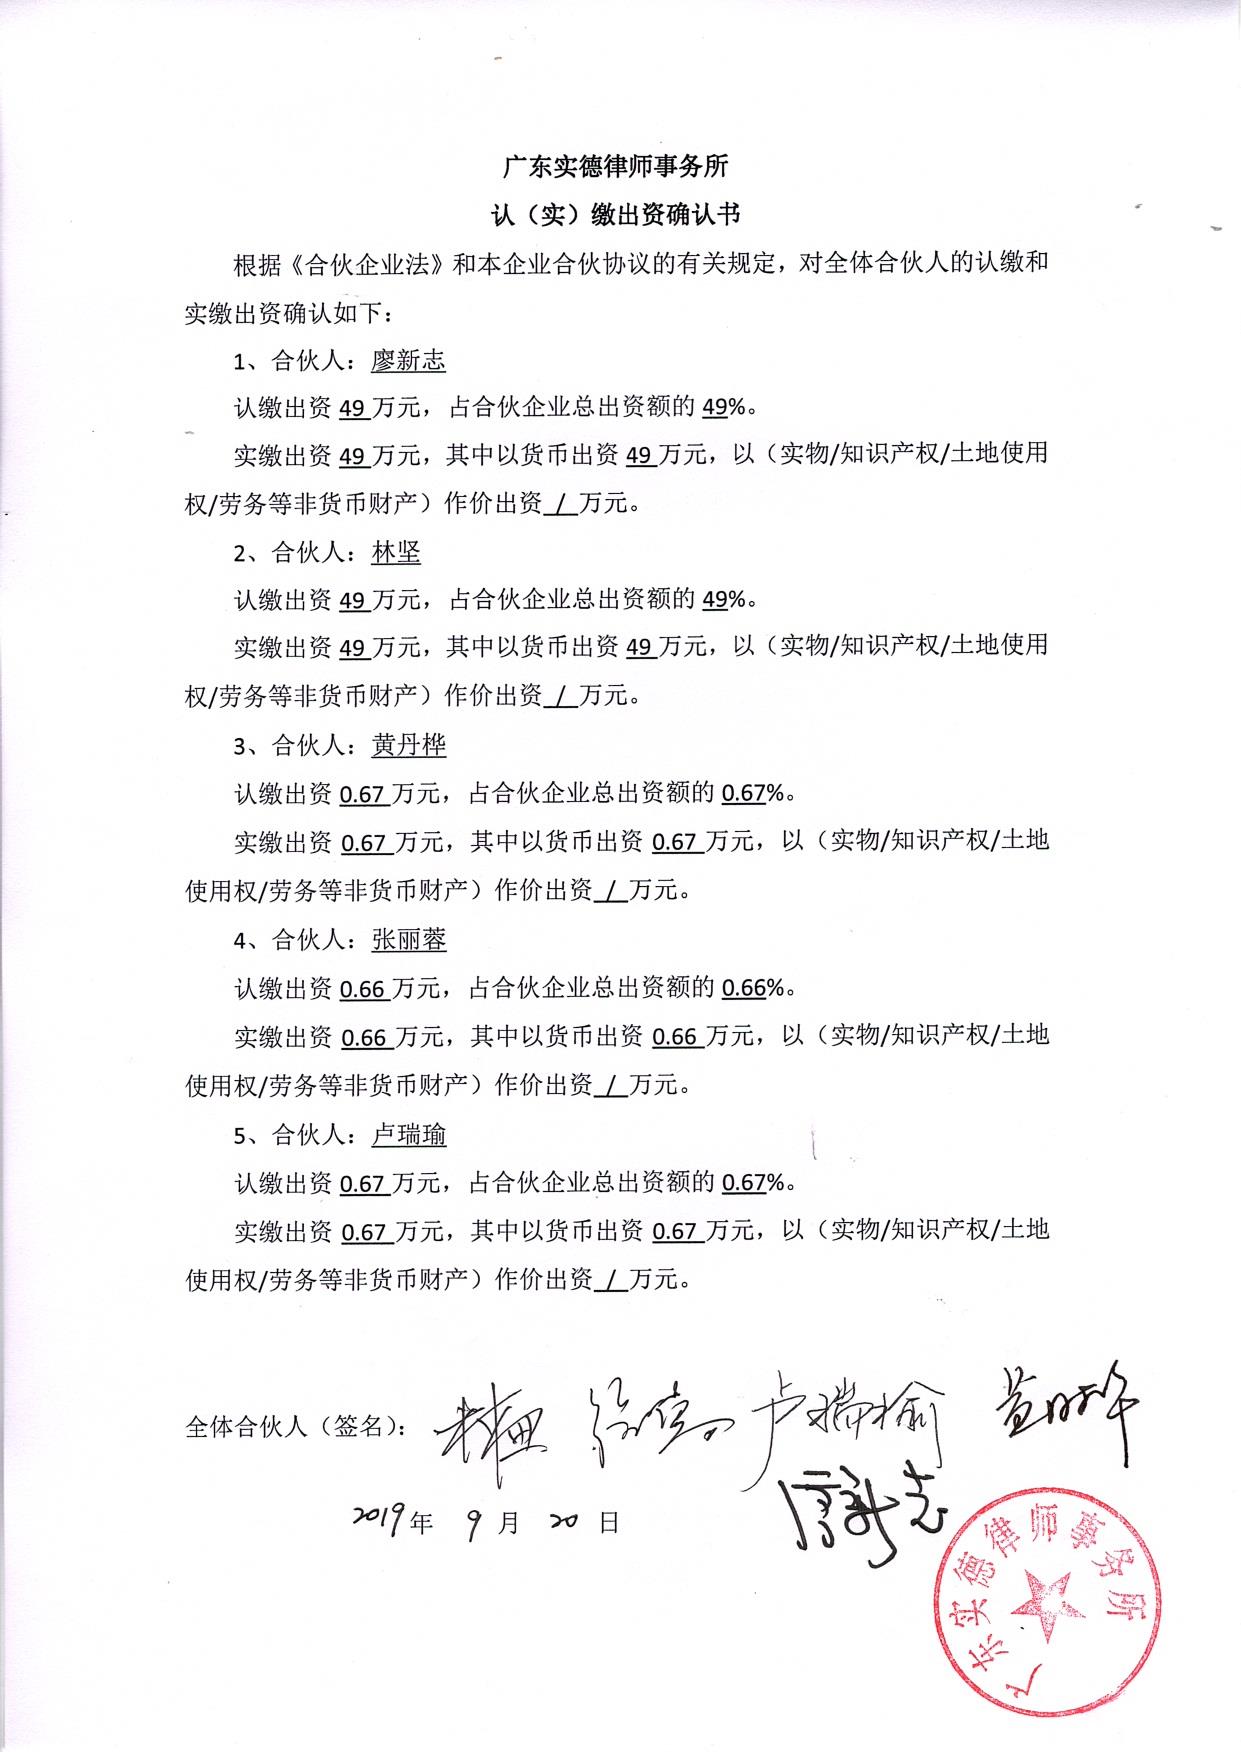 广东实德律师事务所
认（实）缴出资确认书
根据《合伙企业法》和本企业合伙协议的有关规定，对全体合伙人的认缴和
实缴出资确认如下：
1、合伙人：廖新志
认缴出资 49 万元，占合伙企业总出资额的 49%。
实缴出资 49 万元，其中以货币出资 49 万元，以（实物/知识产权/土地使用
权/劳务等非货币财产）作价出资 / 万元。
2、合伙人：林坚
认缴出资 49 万元，占合伙企业总出资额的 49%。
实缴出资 49 万元，其中以货币出资 49 万元，以（实物/知识产权/土地使用
权/劳务等非货币财产）作价出资 / 万元。
3、合伙人：黄丹桦
认缴出资 0.67 万元，占合伙企业总出资额的 0.67%。
实缴出资 0.67 万元，其中以货币出资 0.67 万元，以（实物/知识产权/土地
使用权/劳务等非货币财产）作价出资 / 万元。
4、合伙人：张丽蓉
认缴出资 0.66 万元，占合伙企业总出资额的 0.66%。
实缴出资 0.66 万元，其中以货币出资 0.66 万元，以（实物/知识产权/土地
使用权/劳务等非货币财产）作价出资 / 万元。
5、合伙人：卢瑞瑜
认缴出资 0.67 万元，占合伙企业总出资额的 0.67%。
实缴出资 0.67 万元，其中以货币出资 0.67 万元，以（实物/知识产权/土地
使用权/劳务等非货币财产）作价出资 / 万元。
全体合伙人（签名）： 林坚 卢瑞瑜 黄丹桦
廖新志
2019年 9 月 20 日
广东实德律师事务所